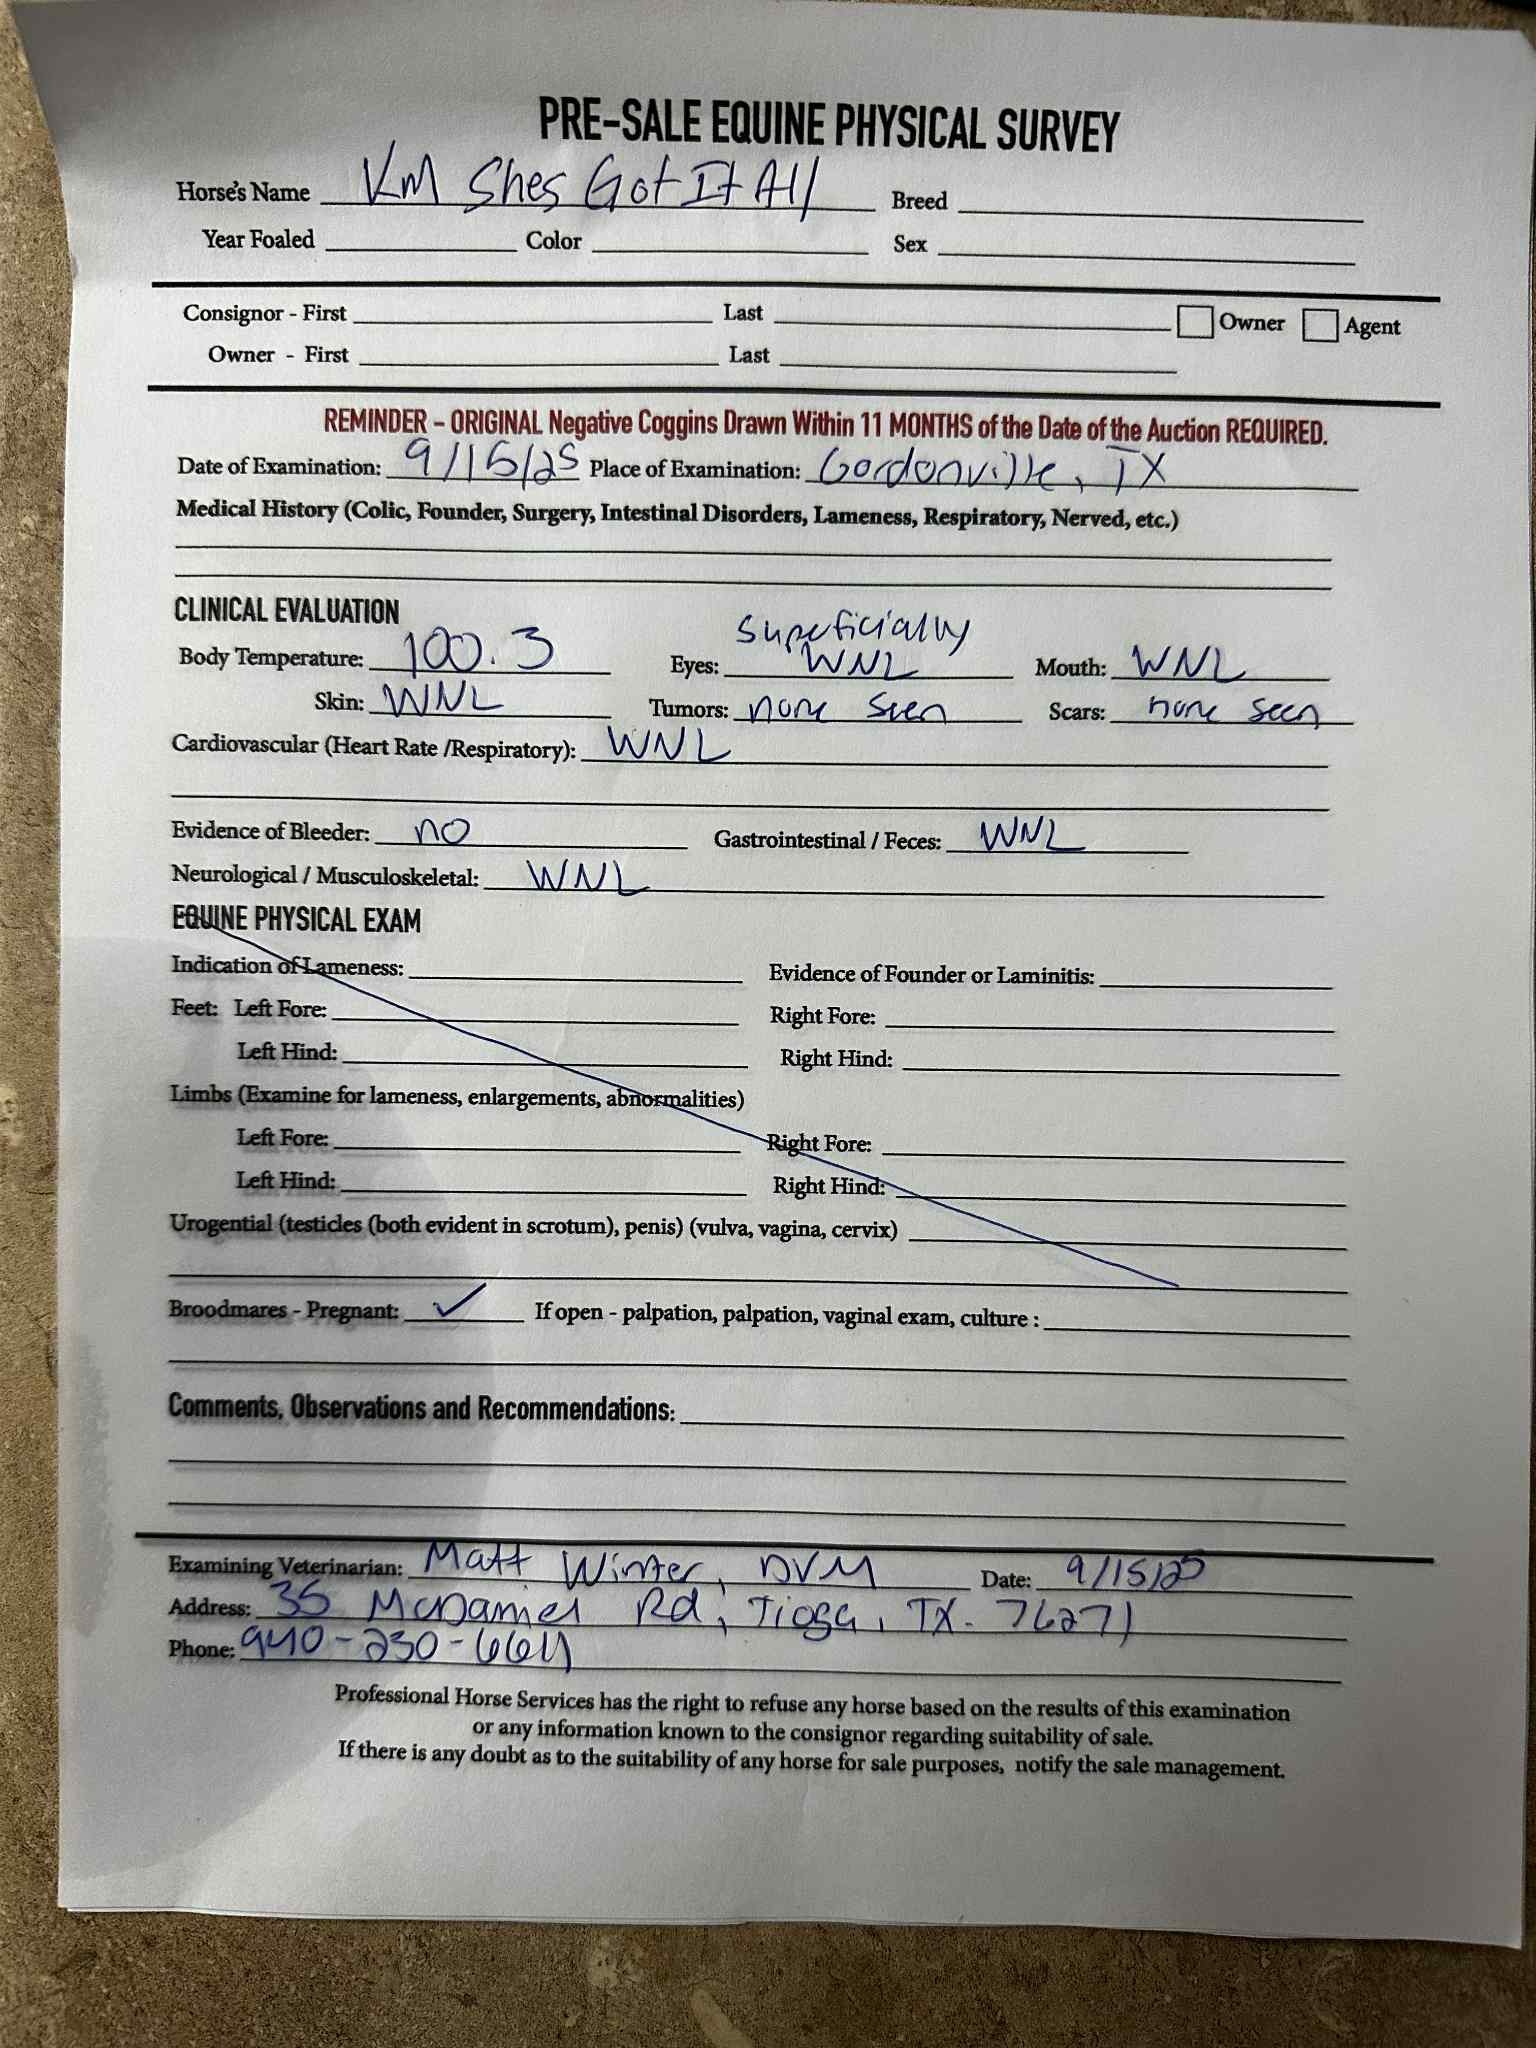 PRE-SALE EQUINE PHYSICAL SURVEY
Horse's Name KM Shes Got It All Breed
Year Foaled Color Sex
Consignor - First Last Owner Agent
Owner - First Last
REMINDER - ORIGINAL Negative Coggins Drawn Within 11 MONTHS of the Date of the Auction REQUIRED.
Date of Examination: 9/15/25 Place of Examination: Gordonville, TX
Medical History (Colic, Founder, Surgery, Intestinal Disorders, Lameness, Respiratory, Nerved, etc.)
CLINICAL EVALUATION
superficially
Body Temperature: 100.3 Eyes: WNL Mouth: WNL
Skin: WNL Tumors: none seen Scars: none seen
Cardiovascular (Heart Rate /Respiratory): WNL
Evidence of Bleeder: no Gastrointestinal / Feces: WNL
Neurological / Musculoskeletal: WNL
EQUINE PHYSICAL EXAM
Indication of Lameness: Evidence of Founder or Laminitis:
Feet: Left Fore: Right Fore:
Left Hind: Right Hind:
Limbs (Examine for lameness, enlargements, abnormalities)
Left Fore: Right Fore:
Left Hind: Right Hind:
Urogential (testicles (both evident in scrotum), penis) (vulva, vagina, cervix)
Broodmares - Pregnant: ✓ If open - palpation, palpation, vaginal exam, culture :
Comments, Observations and Recommendations:
Examining Veterinarian: Matt Winter, DVM Date: 9/15/25
Address: 35 McDaniel Rd, Tioga, TX. 76271
Phone: 940-230-6611
Professional Horse Services has the right to refuse any horse based on the results of this examination
or any information known to the consignor regarding suitability of sale.
If there is any doubt as to the suitability of any horse for sale purposes, notify the sale management.